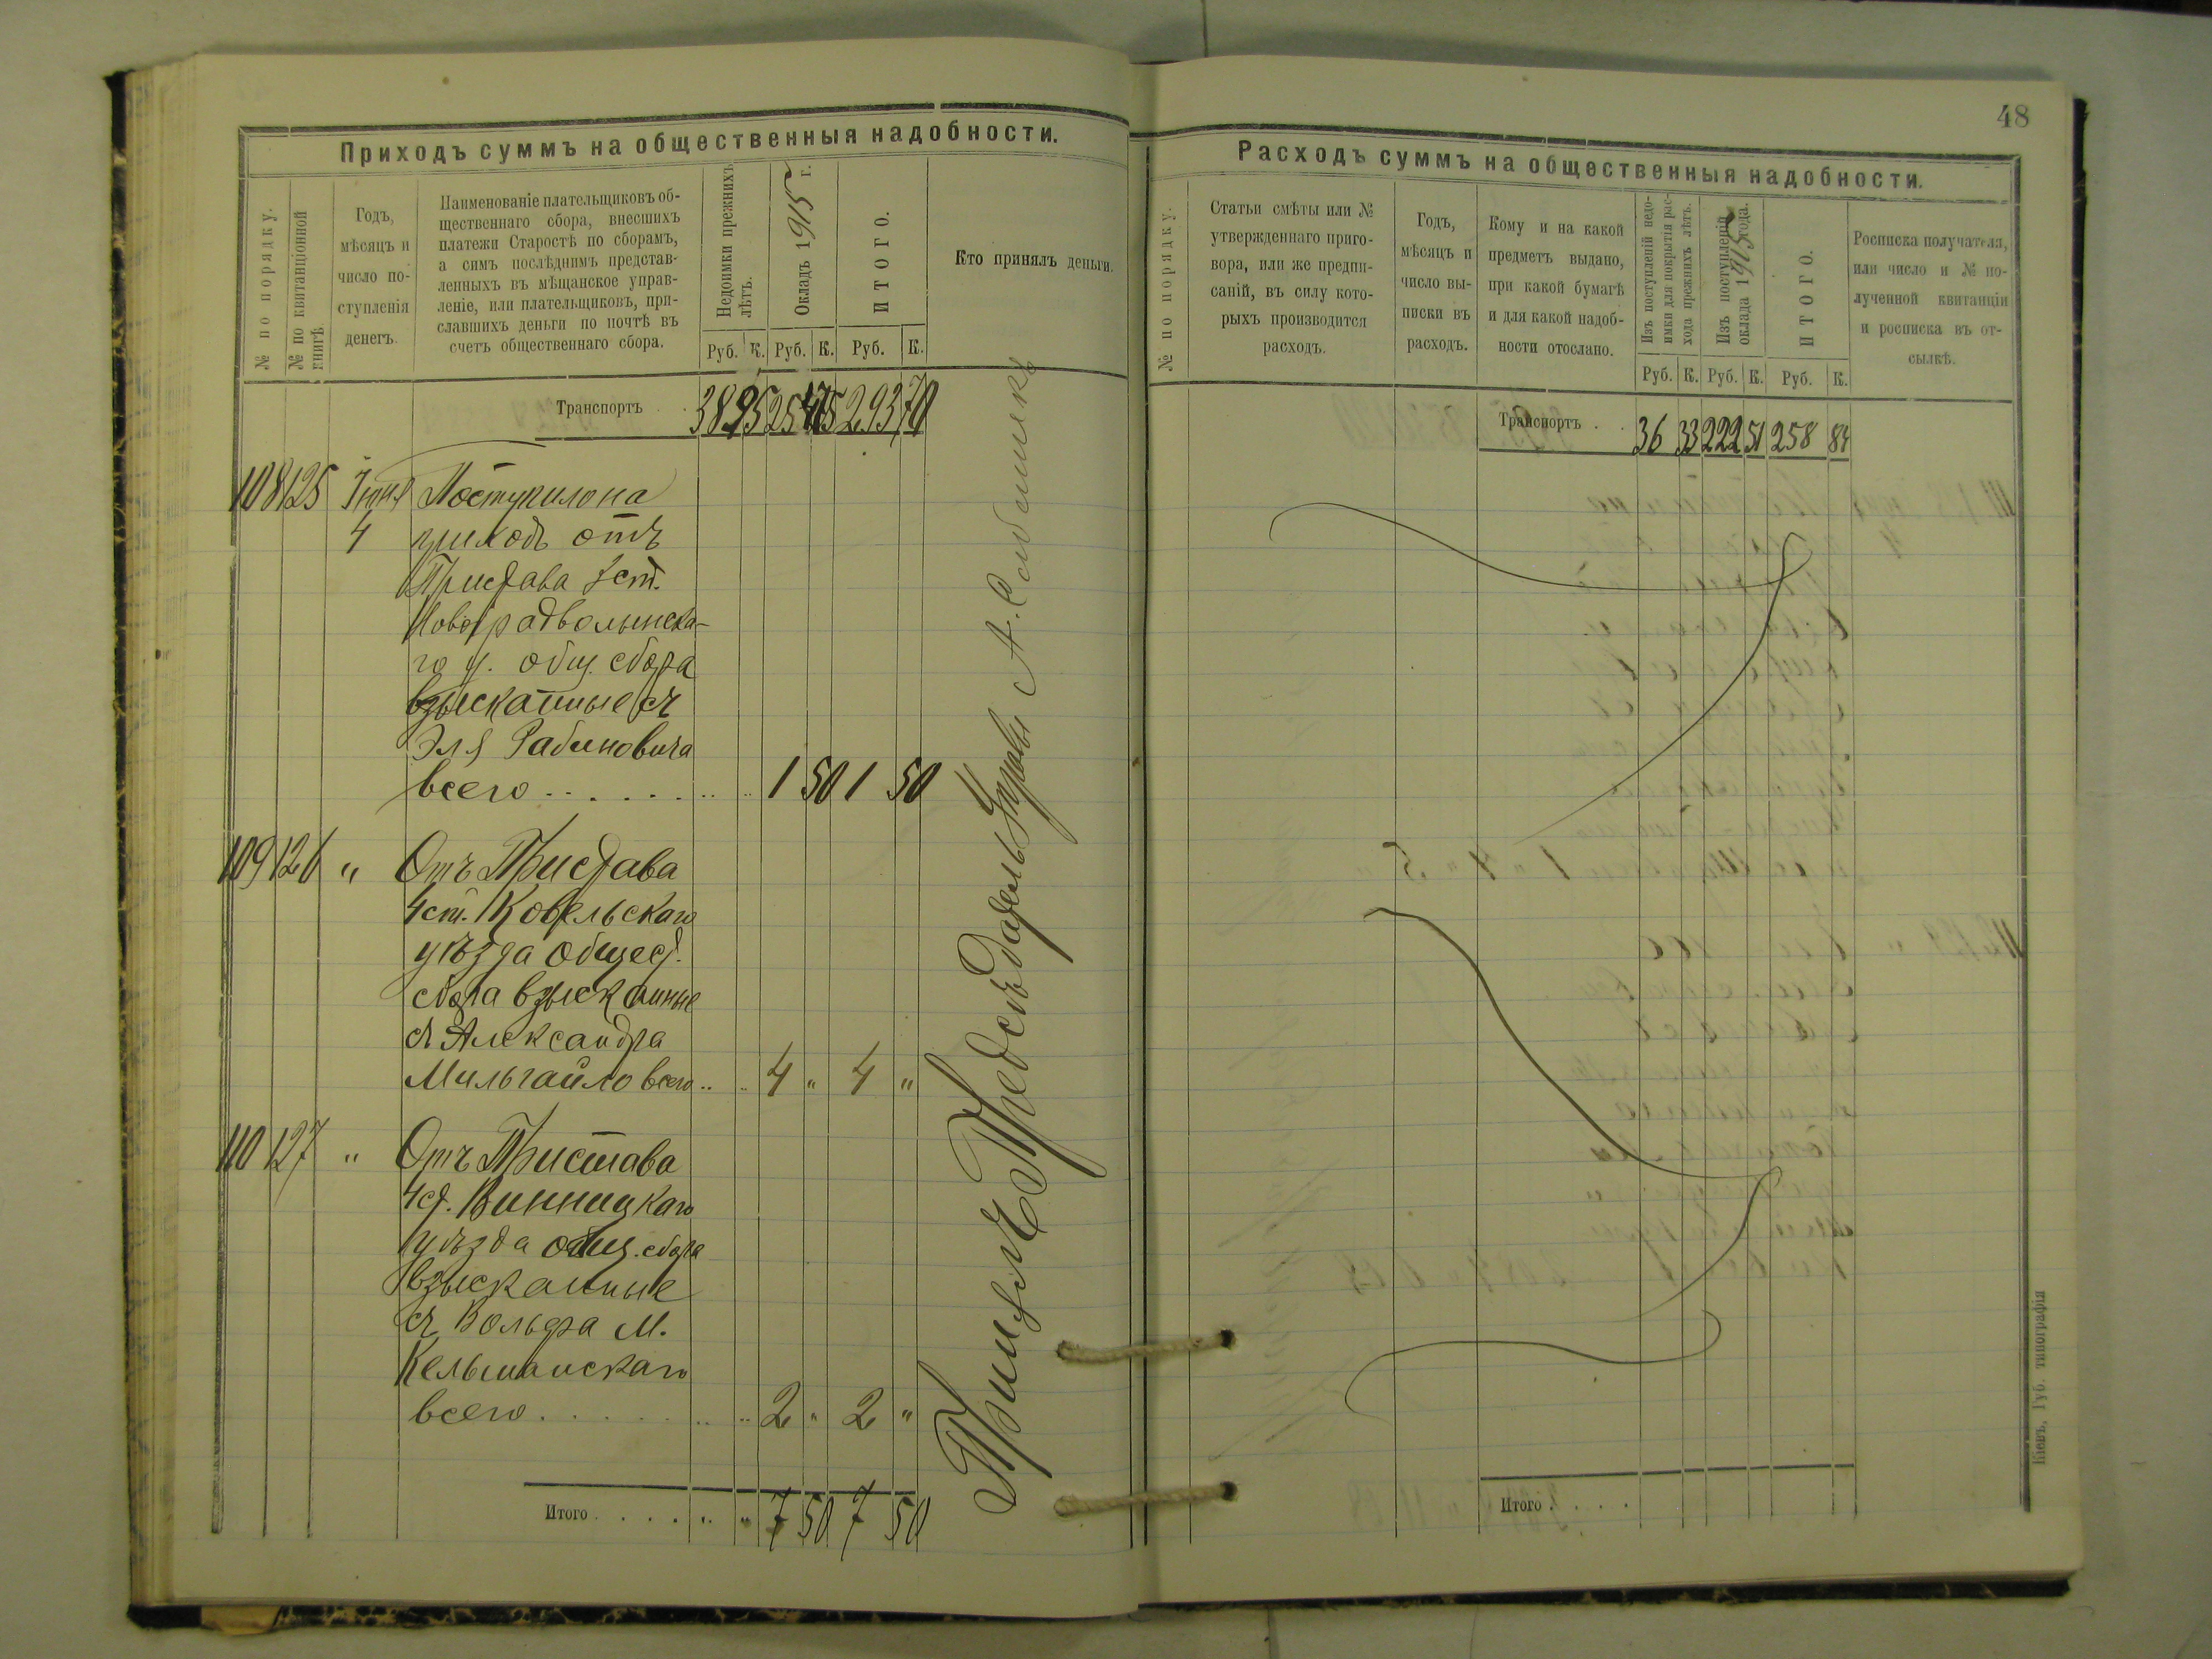 48
Приходъ суммъ на общественныя надобности.
№ по порядку.
№ по квитанціонной книгѣ
Годъ,
мѣсяцъ и
число по-
ступленія
денегъ.
Наименованіе плательщиковъ об-
щественнаго сбора, внесшихъ
платежи Старостѣ по сборамъ,
а симъ послѣднимъ представ-
ленныхъ въ мѣщанское управ-
леніе, или плательщиковъ, при-
славшихъ деньги по почтѣ въ
счетъ общественнаго сбора.
Недоимки прежнихъ
лѣтъ.
Окладъ 1915 г.
ИТОГО.
Кто принялъ деньги.
Руб. К. Руб. К. Руб. К.
Транспортъ . . 38 95 254 75 293 70
108 125 Іюня Поступило на
4 приходъ отъ
Пристава
Новоградволынска-
го у. общ. сбора
взысканные съ
Эля Рабиновича
всего . . . . . . 1 50 1 50
109 126 „ Отъ Пристава
4 ст. Ковельскаго
уѣзда общест.
сбора взысканные
съ Александра
Мильгайло всего .. .. 4 „ 4 „
110 127 „ Отъ Пристава
4 ст. Винницкаго
уѣзда общ. сбора
взысканные
съ Вольфа М.
Кельманскаго
всего . . . . . . 2 „ 2 „
Итого . . . . „ „ 7 50 7 50
Принялъ Предсѣдатель Управы А.
Расходъ суммъ на общественныя надобности.
№ по порядку.
Статьи смѣты или №
утвержденнаго приго-
вора, или же предпи-
саній, въ силу кото-
рыхъ производится
расходъ.
Годъ,
мѣсяцъ и
число вы-
писки въ
расходъ.
Кому и на какой
предметъ выдано,
при какой бумагѣ
и для какой надоб-
ности отослано.
Изъ поступленій недо-
имки для покрытія рас-
хода прежнихъ лѣтъ.
Изъ поступленій
оклада 1915 года.
ИТОГО.
Росписка получателя,
или число и № по-
лученной квитанціи
и росписка въ от-
сылкѣ.
Руб. К. Руб. К. Руб. К.
Транспортъ . . 36 33 222 51 258 84
Итого . . . .
Кіевъ, Губ. типографія